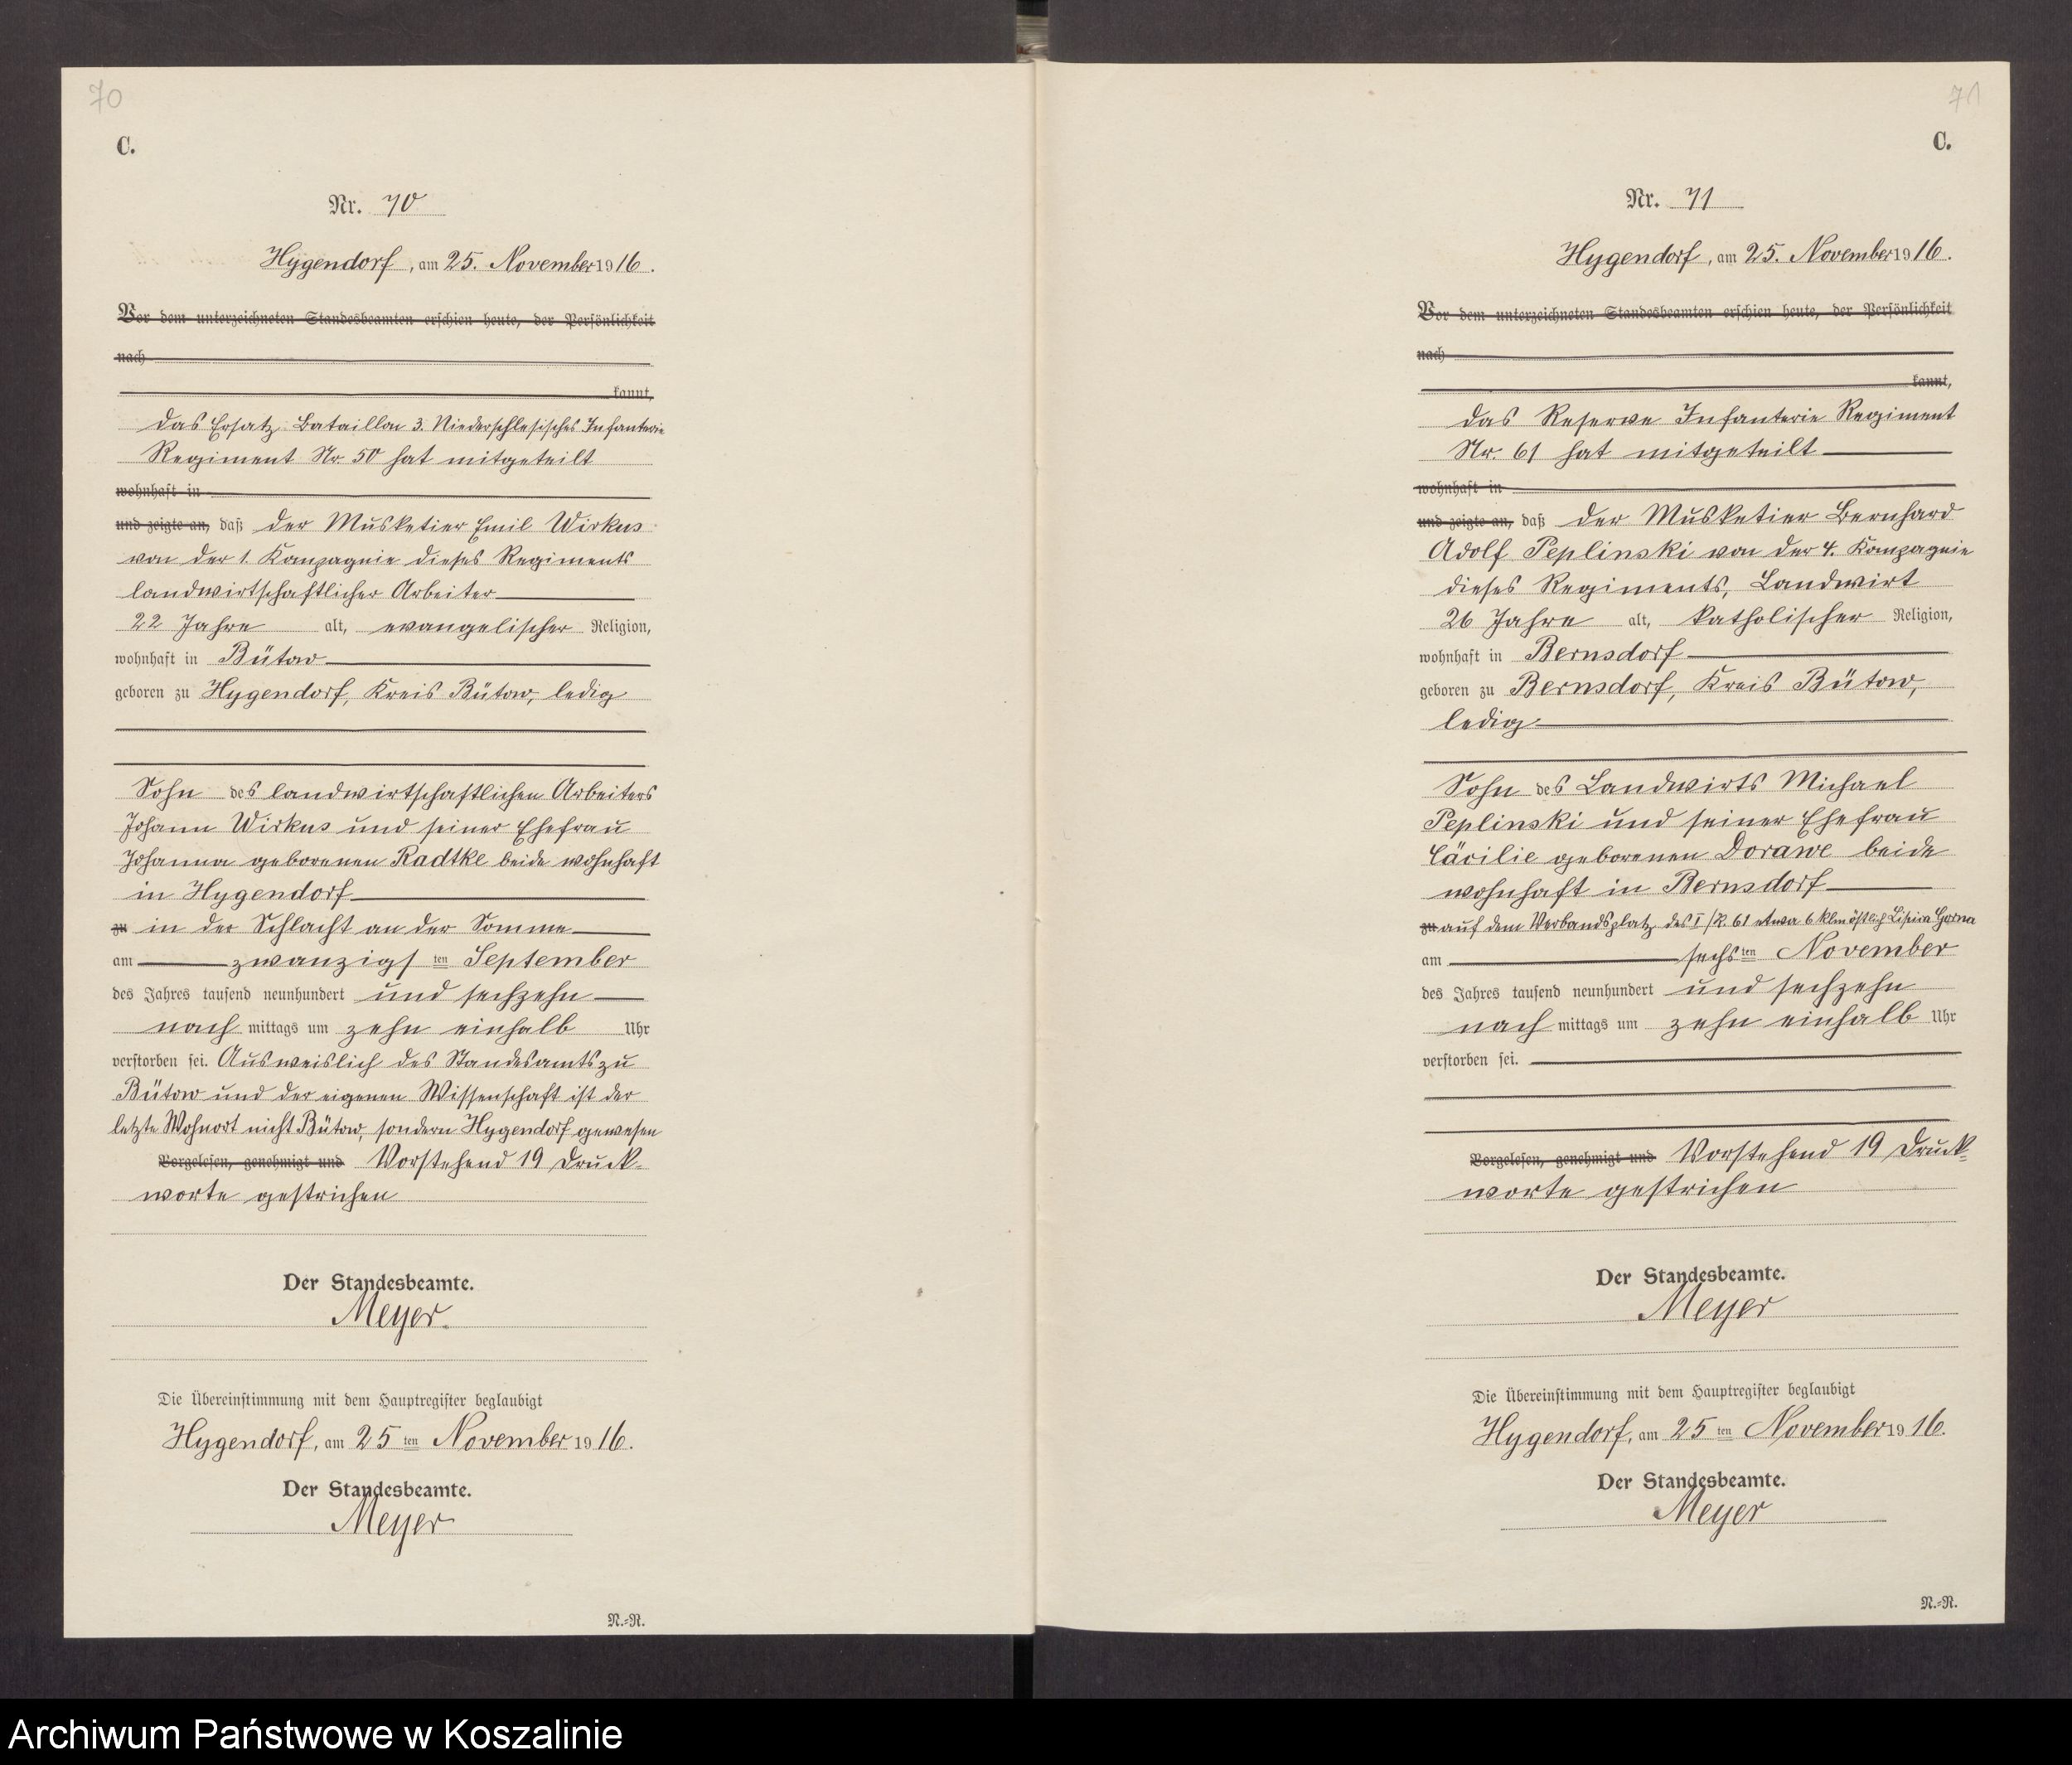 70
C.
Nr. 70
Hygendorf, am 25. November 1916.
Vor dem unterzeichneten Standesbeamten erschien heute, der Persönlichkeit
nach
kannt,
das Ersatz Bataillon 3. Niederschlesisches Infanterie
Regiment Nr. 50 hat mitgeteilt
wohnhaft in
und zeigte an, daß der Musketier Emil Wirkus
von der 1. Kompagnie dieses Regiments
landwirtschaftlicher Arbeiter
22 Jahre alt, evangelischer Religion,
wohnhaft in Bütow
geboren zu Hygendorf, Kreis Bütow, ledig
Sohn des landwirtschaftlichen Arbeiters
Johann Wirkus und seiner Ehefrau
Johanna geborenen Radtke beide wohnhaft
in Hygendorf
zu in der Schlacht an der Somme
am zwanzigsten September
des Jahres tausend neunhundert und sechzehn
nach mittags um zehn einhalb Uhr
verstorben sei. Ausweislich des Standesamts zu
Bütow und der eigenen Wissenschaft ist der
letzte Wohnort nicht Bütow, sondern Hygendorf gewesen
Vorgelesen, genehmigt und Vorstehend 19 Druck-
worte gestrichen
Der Standesbeamte.
Meyer.
Die Übereinstimmung mit dem Hauptregister beglaubigt
Hygendorf, am 25 ten November 1916.
Der Standesbeamte.
Meyer
N.-R.
71
C.
Nr. 71
Hygendorf, am 25. November 1916.
Vor dem unterzeichneten Standesbeamten erschien heute, der Persönlichkeit
nach
kannt,
das Reserve Infanterie Regiment
Nr. 61 hat mitgeteilt
wohnhaft in
und zeigte an, daß der Musketier Bernhard
Adolf Peplinski von der 4. Kompagnie
dieses Regiments, Landwirt
26 Jahre alt, katholischer Religion,
wohnhaft in Bernsdorf
geboren zu Bernsdorf, Kreis Bütow,
ledig
Sohn des Landwirts Michael
Peplinski und seiner Ehefrau
Cäcilie geborenen Dorawe beide
wohnhaft in Bernsdorf
zu auf dem Verbandsplatz des I/R. 61 etwa 6 klm östlich Lipica Gorna
am sechsten November
des Jahres tausend neunhundert und sechzehn
nach mittags um zehn einhalb Uhr
verstorben sei.
Vorgelesen, genehmigt und Vorstehend 19 Druck-
worte gestrichen
Der Standesbeamte.
Meyer
Die Übereinstimmung mit dem Hauptregister beglaubigt
Hygendorf, am 25 ten November 1916.
Der Standesbeamte.
Meyer
N.-R.
Archiwum Państwowe w Koszalinie